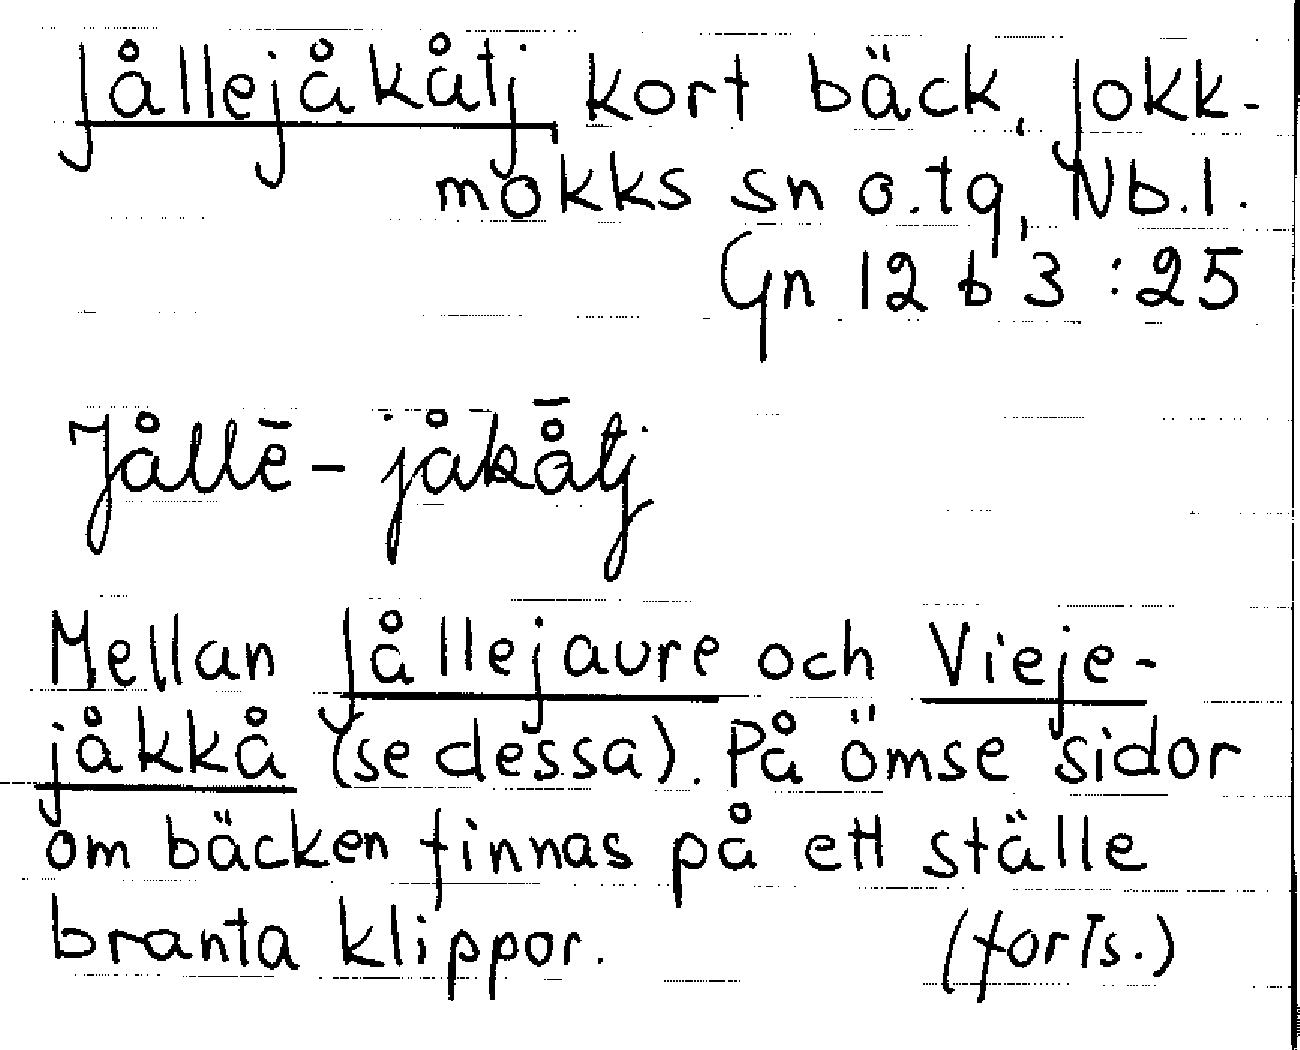 Jållejåkåtj, kort bäck, Jokk-
mokks sn o. tg, Nb. l.
Gn 12 b 3 : 25
Jållē-jåkå̄tj
Mellan Jållejaure och Vieje-
jåkkå (se dessa). På ömse sidor
om bäcken finnas på ett ställe
branta klippor. (forts.)